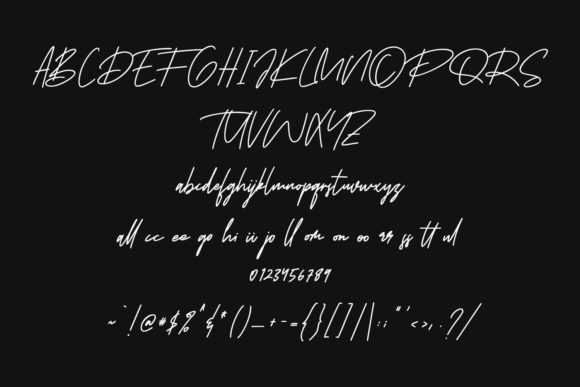 ABCDEFGHIJKLMNOPQRS
TUVWXYZ
abcdefghijklmnopqrstuvwxyz
all cc ee gp hi ii jo ll om on oo rr ss tt ul
0123456789
~`!@#$%^&*()_+-={}[]|\:;"'<>,.?/